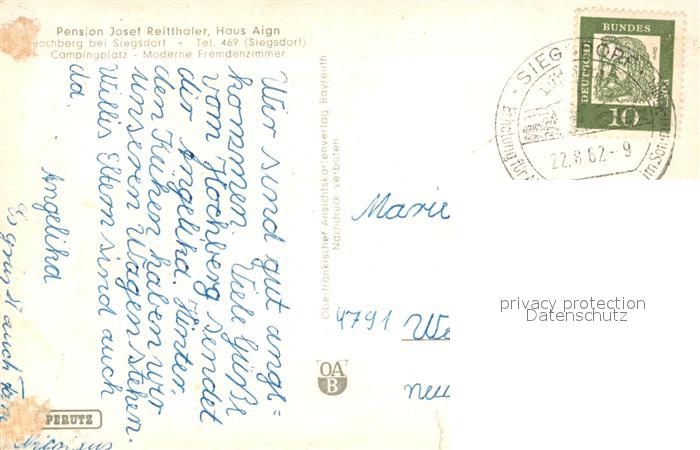 Pension Josef Reitthaler, Haus Aign
Hochberg bei Siegsdorf - Tel. 469 (Siegsdorf)
Campingplatz - Moderne Fremdenzimmer
Wir sind gut ange=
kommen. Viele Grüße
vom Hochberg sendet
dir Angelika. Hinter
den Kühen haben wir
unseren Wagen stehen.
Willis Eltern sind auch
da.
Angelika
Es grüßt auch
Oberfränkischer Ansichtskartenverlag Bayreuth
Nachdruck verboten
OA
B
PERUTZ
SIEGSDORF
22.8.62-9
DEUTSCHE
BUNDES
POST
10
Marie
4791 We
neu
privacy protection
Datenschutz